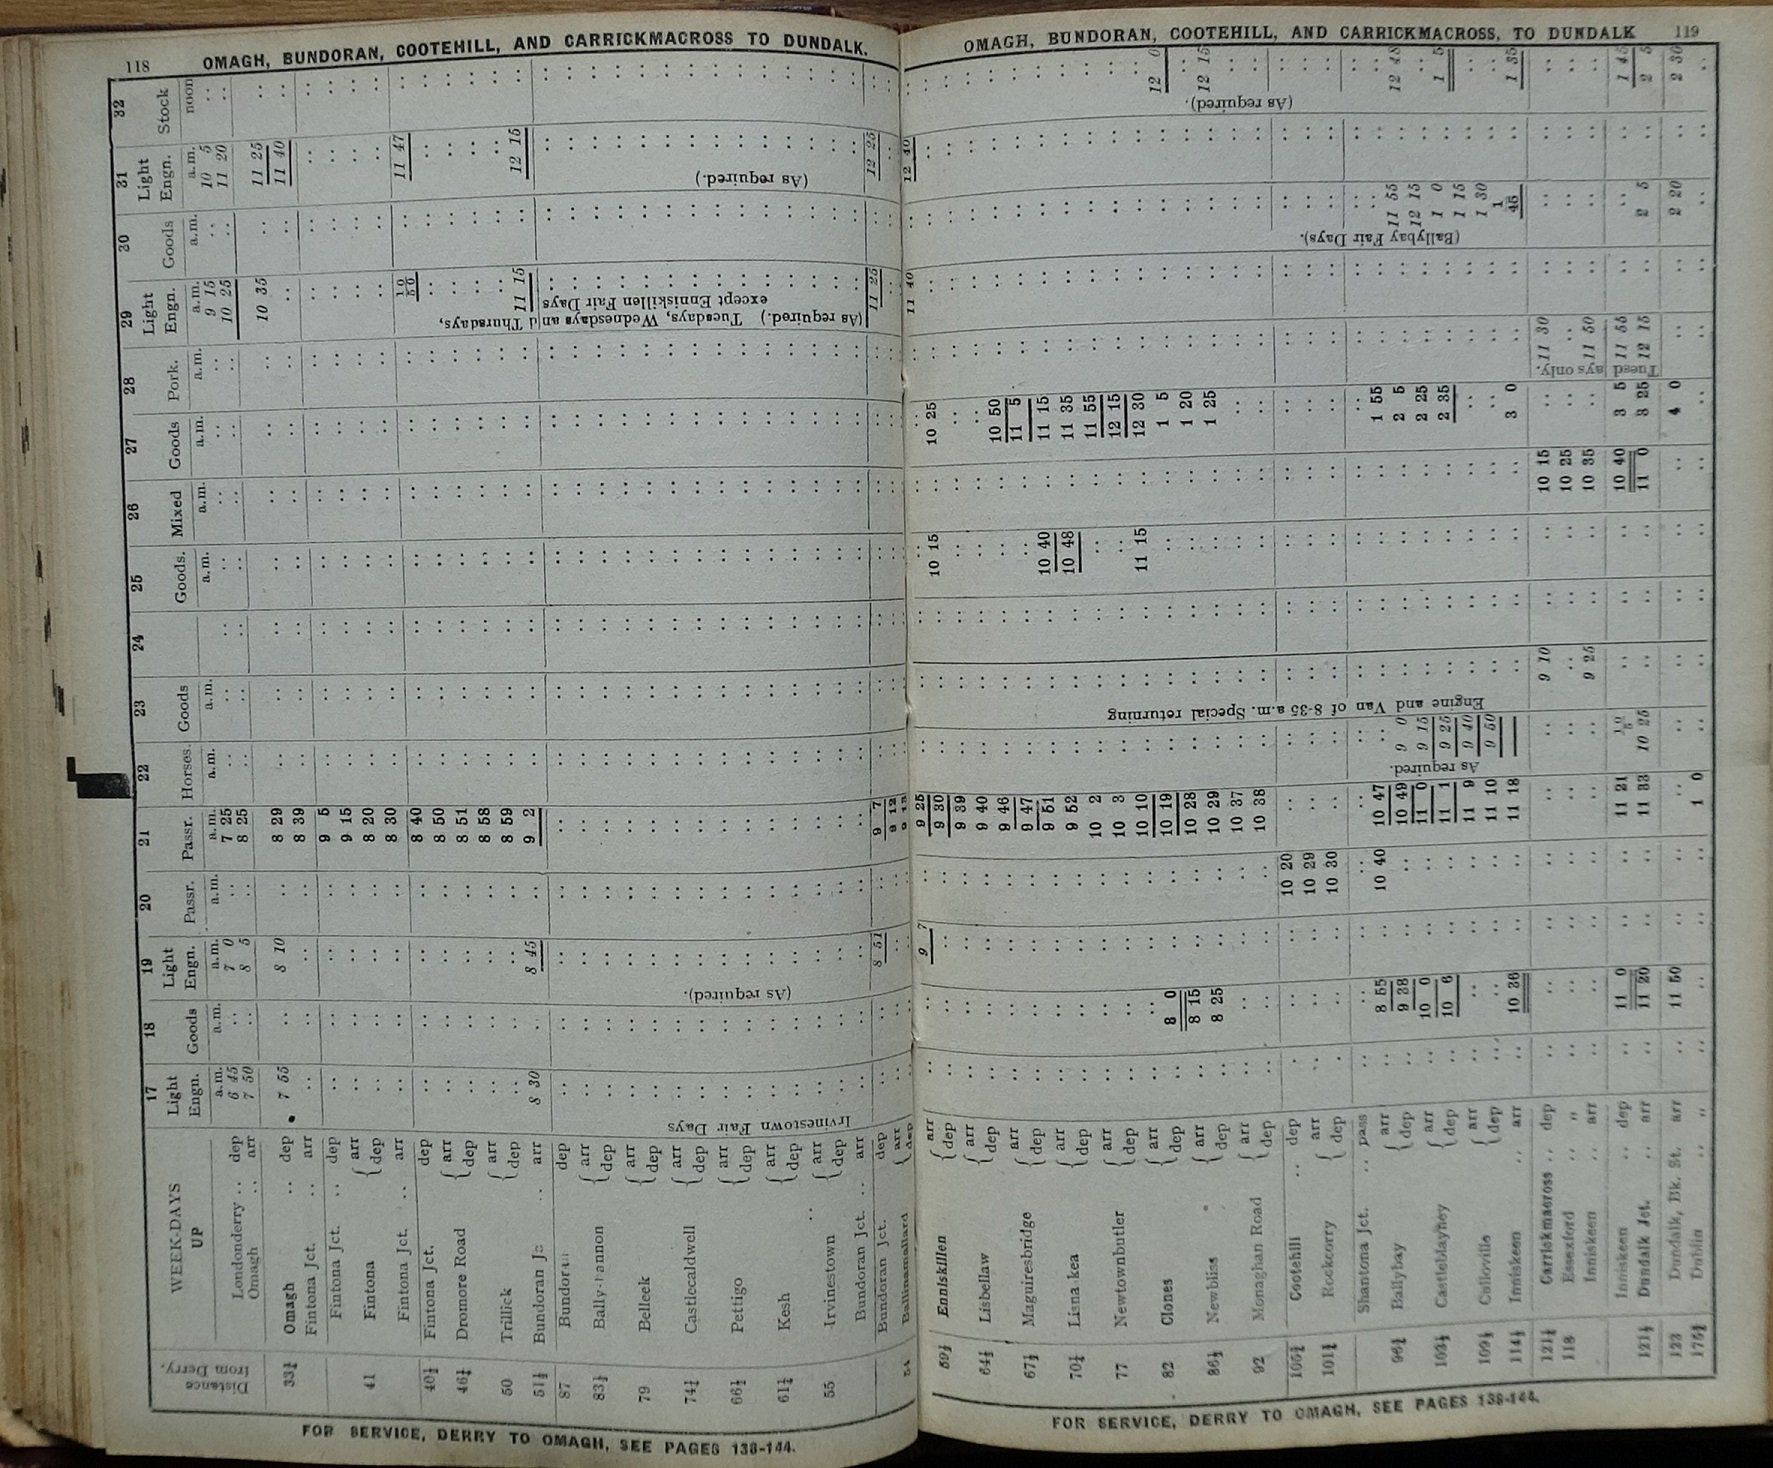 118 OMAGH, BUNDORAN, COOTEHILL, AND CARRICKMACROSS TO DUNDALK.
17 18 19 20 21 22 23 24 25 26 27 28 29 30 31 32
WEEK-DAYS Light Goods Light Passr. Passr. Horses. Goods Goods. Mixed Goods Pork. Light Goods Light Stock
UP Engn. Engn. Engn. Engn.
Distance from Derry.
a.m. a.m. a.m. a.m. a.m. a.m. a.m. a.m. a.m. a.m. a.m. a.m. a.m. a.m. noon
Londonderry .. dep 6 45 7 0 7 25 9 15 10 5
Omagh .. arr 7 50 8 5 8 25 10 25 11 20
33¾ Omagh .. dep 7 55 8 10 8 29 10 35 11 25
Fintona Jct. .. arr 8 39 11 40
Fintona Jct. .. dep 9 5
41 Fintona { arr 9 15
dep 8 20
Fintona Jct. .. arr 8 30
40½ Fintona Jct. dep 8 40 10 50 11 47
46¾ Dromore Road { arr 8 50
dep 8 51
50 Trillick { arr 8 58
dep 8 59
51½ Bundoran .. arr 8 30 8 45 9 2 11 15 12 15
87 Bundoran dep
83½ { arr
dep
79 Belleek { arr
dep
74¼ Castlecaldwell { arr
dep
66½ Pettigo { arr
dep
61½ Kesh { arr
dep
55 Irvinestown { arr
dep
Bundoran Jct. .. arr
Irvinestown Fair Days
(As required).
(As required.) Tuesdays, Wednesdays and Thursdays,
except Enniskillen Fair Days
(As required.)
Bundoran Jct. dep 8 51 9 7 11 25 12 25
54 Ballinamallard { arr 9 12
dep 9 13
FOR SERVICE, DERRY TO OMAGH, SEE PAGES 138-144.
OMAGH, BUNDORAN, COOTEHILL, AND CARRICKMACROSS, TO DUNDALK 119
59½ Enniskillen { arr 9 7 9 25 11 40 12 40
dep 9 30 10 15 10 25
64½ Lisbellaw { arr 9 39
dep 9 40
67½ Maguiresbridge { arr 9 46 10 50
dep 9 47 11 5
70½ Lisna kea { arr 9 51 10 40 11 15
dep 9 52 10 48 11 35
77 Newtownbutler { arr 10 2 11 55
dep 10 3 12 15
82 Clones { arr 10 10 11 15 12 30
dep 8 0 10 19 1 5 12 0
86½ Newbliss { arr 8 15 10 28 1 20
dep 8 25 10 29 1 25 12 15
92 Monaghan Road { arr 10 37
dep 10 38
Cootehill .. dep 10 20
Rockcorry { arr 10 29
dep 10 30
Shantona Jct. .. pass
Ballybay { arr 8 55 10 40 10 47 1 55
dep 9 38 10 49 9 0 2 5 11 55 12 48
103½ Castleblayney { arr 10 0 11 0 9 15 2 25 12 15
dep 10 6 11 1 9 25 2 35 1 0 1 5
109½ Culloville { arr 11 9 9 40 1 15
dep 11 10 9 50 1 30
114½ Inniskeen .. arr 10 36 11 18 3 0 1 45 1 35
As required.
Engine and Van of 8-35 a.m. Special returning
(Ballybay Fair Days).
(As required).
121½ Carrickmacross .. dep 9 10 10 15 11 30
118 Essexford .. „ 10 25
Inniskeen .. arr 9 25 10 35 11 50
Inniskeen .. dep 11 0 11 21 10 5 10 40 3 5 11 55 1 45
121½ Dundalk Jct. arr 11 20 11 33 10 25 11 0 3 25 12 15 2 5 2 5
Tuesdays only.
123 Dundalk, Bk. St. arr 11 50 4 0 2 20 2 30
Dublin .. „ 1 0
FOR SERVICE, DERRY TO OMAGH, SEE PAGES 138-144.